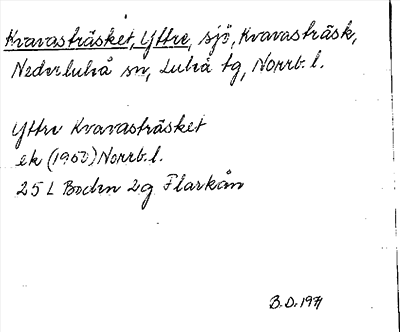 Kvavasträsket, Yttre, sjö, Kvavasträsk,
Nederluleå sn, Luleå tg, Norrb. l.
Yttre Kvavasträsket
ek (1950) Norrb. l.
25 L Boden 2g Flarkån
B.D. 1971